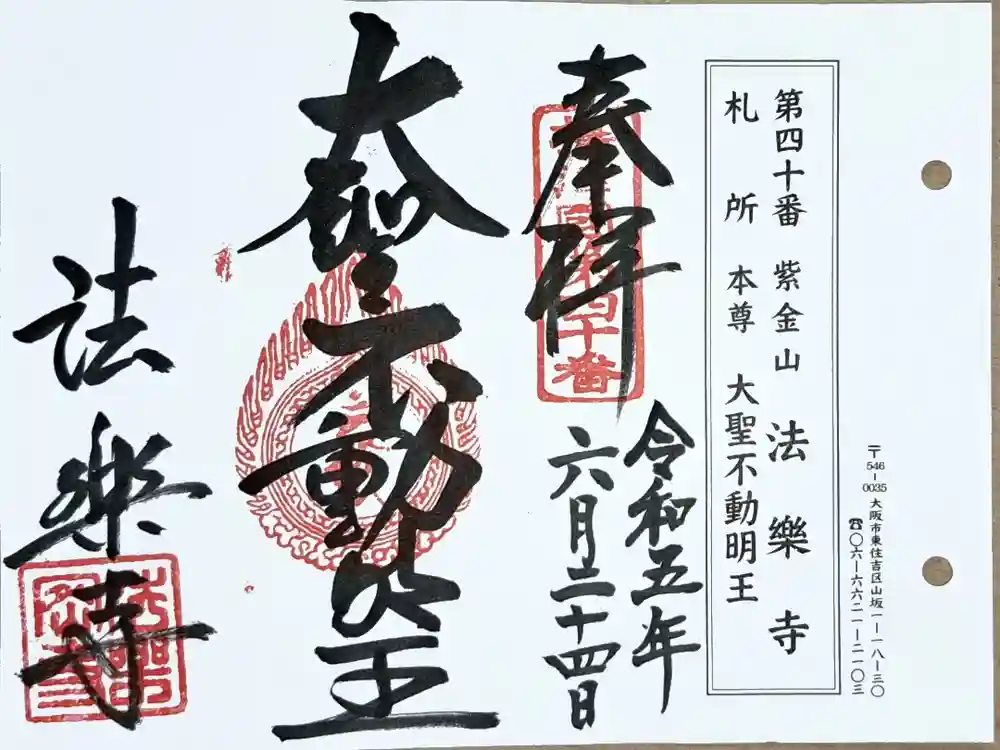 第四十番 紫金山 法樂寺
札所 本尊 大聖不動明王
〒546-0035 大阪市東住吉区山坂一-一八-三〇
☎〇六-六六二一-二一〇三
奉拝
第四十番
令和五年
六月二十四日
大聖不動明王
法樂寺